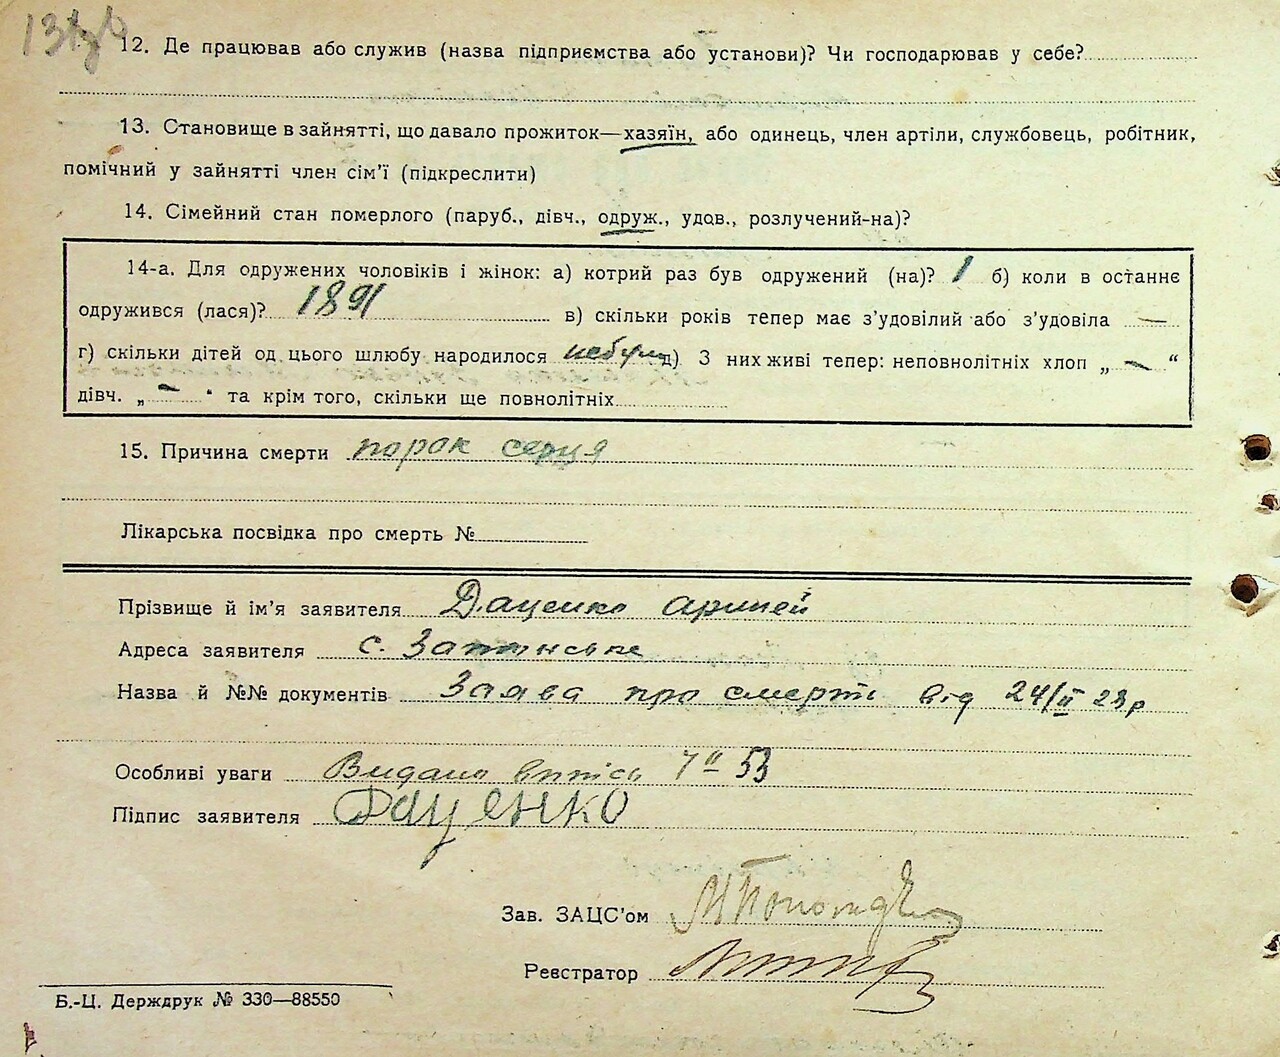 12. Де працював або служив (назва підприємства або установи)? Чи господарював у себе?
13. Становище в зайнятті, що давало прожиток—хазяїн, або одинець, член артіли, службовець, робітник,
помічний у зайнятті член сім’ї (підкреслити)
14. Сімейний стан померлого (паруб., дівч., одруж., удов., розлучений-на)?
14-а. Для одружених чоловіків і жінок: а) котрий раз був одружений (на)? 1 б) коли в останнє
одружився (лася)? 1891 в) скільки років тепер має з’удовілий або з’удовіла —
г) скільки дітей од цього шлюбу народилося небуло д) З них живі тепер: неповнолітніх хлоп „ — “
дівч. „ — “ та крім того, скільки ще повнолітніх
15. Причина смерти порок серця
Лікарська посвідка про смерть №
Прізвище й ім’я заявителя Даценко
Адреса заявителя с.
Назва й №№ документів Заява про смерть від 24/II 23р
Особливі уваги Видано випись 7 II 53
Підпис заявителя Даценко
Зав. ЗАЦС’ом
Реєстратор
Б.-Ц. Держдрук № 330—88550